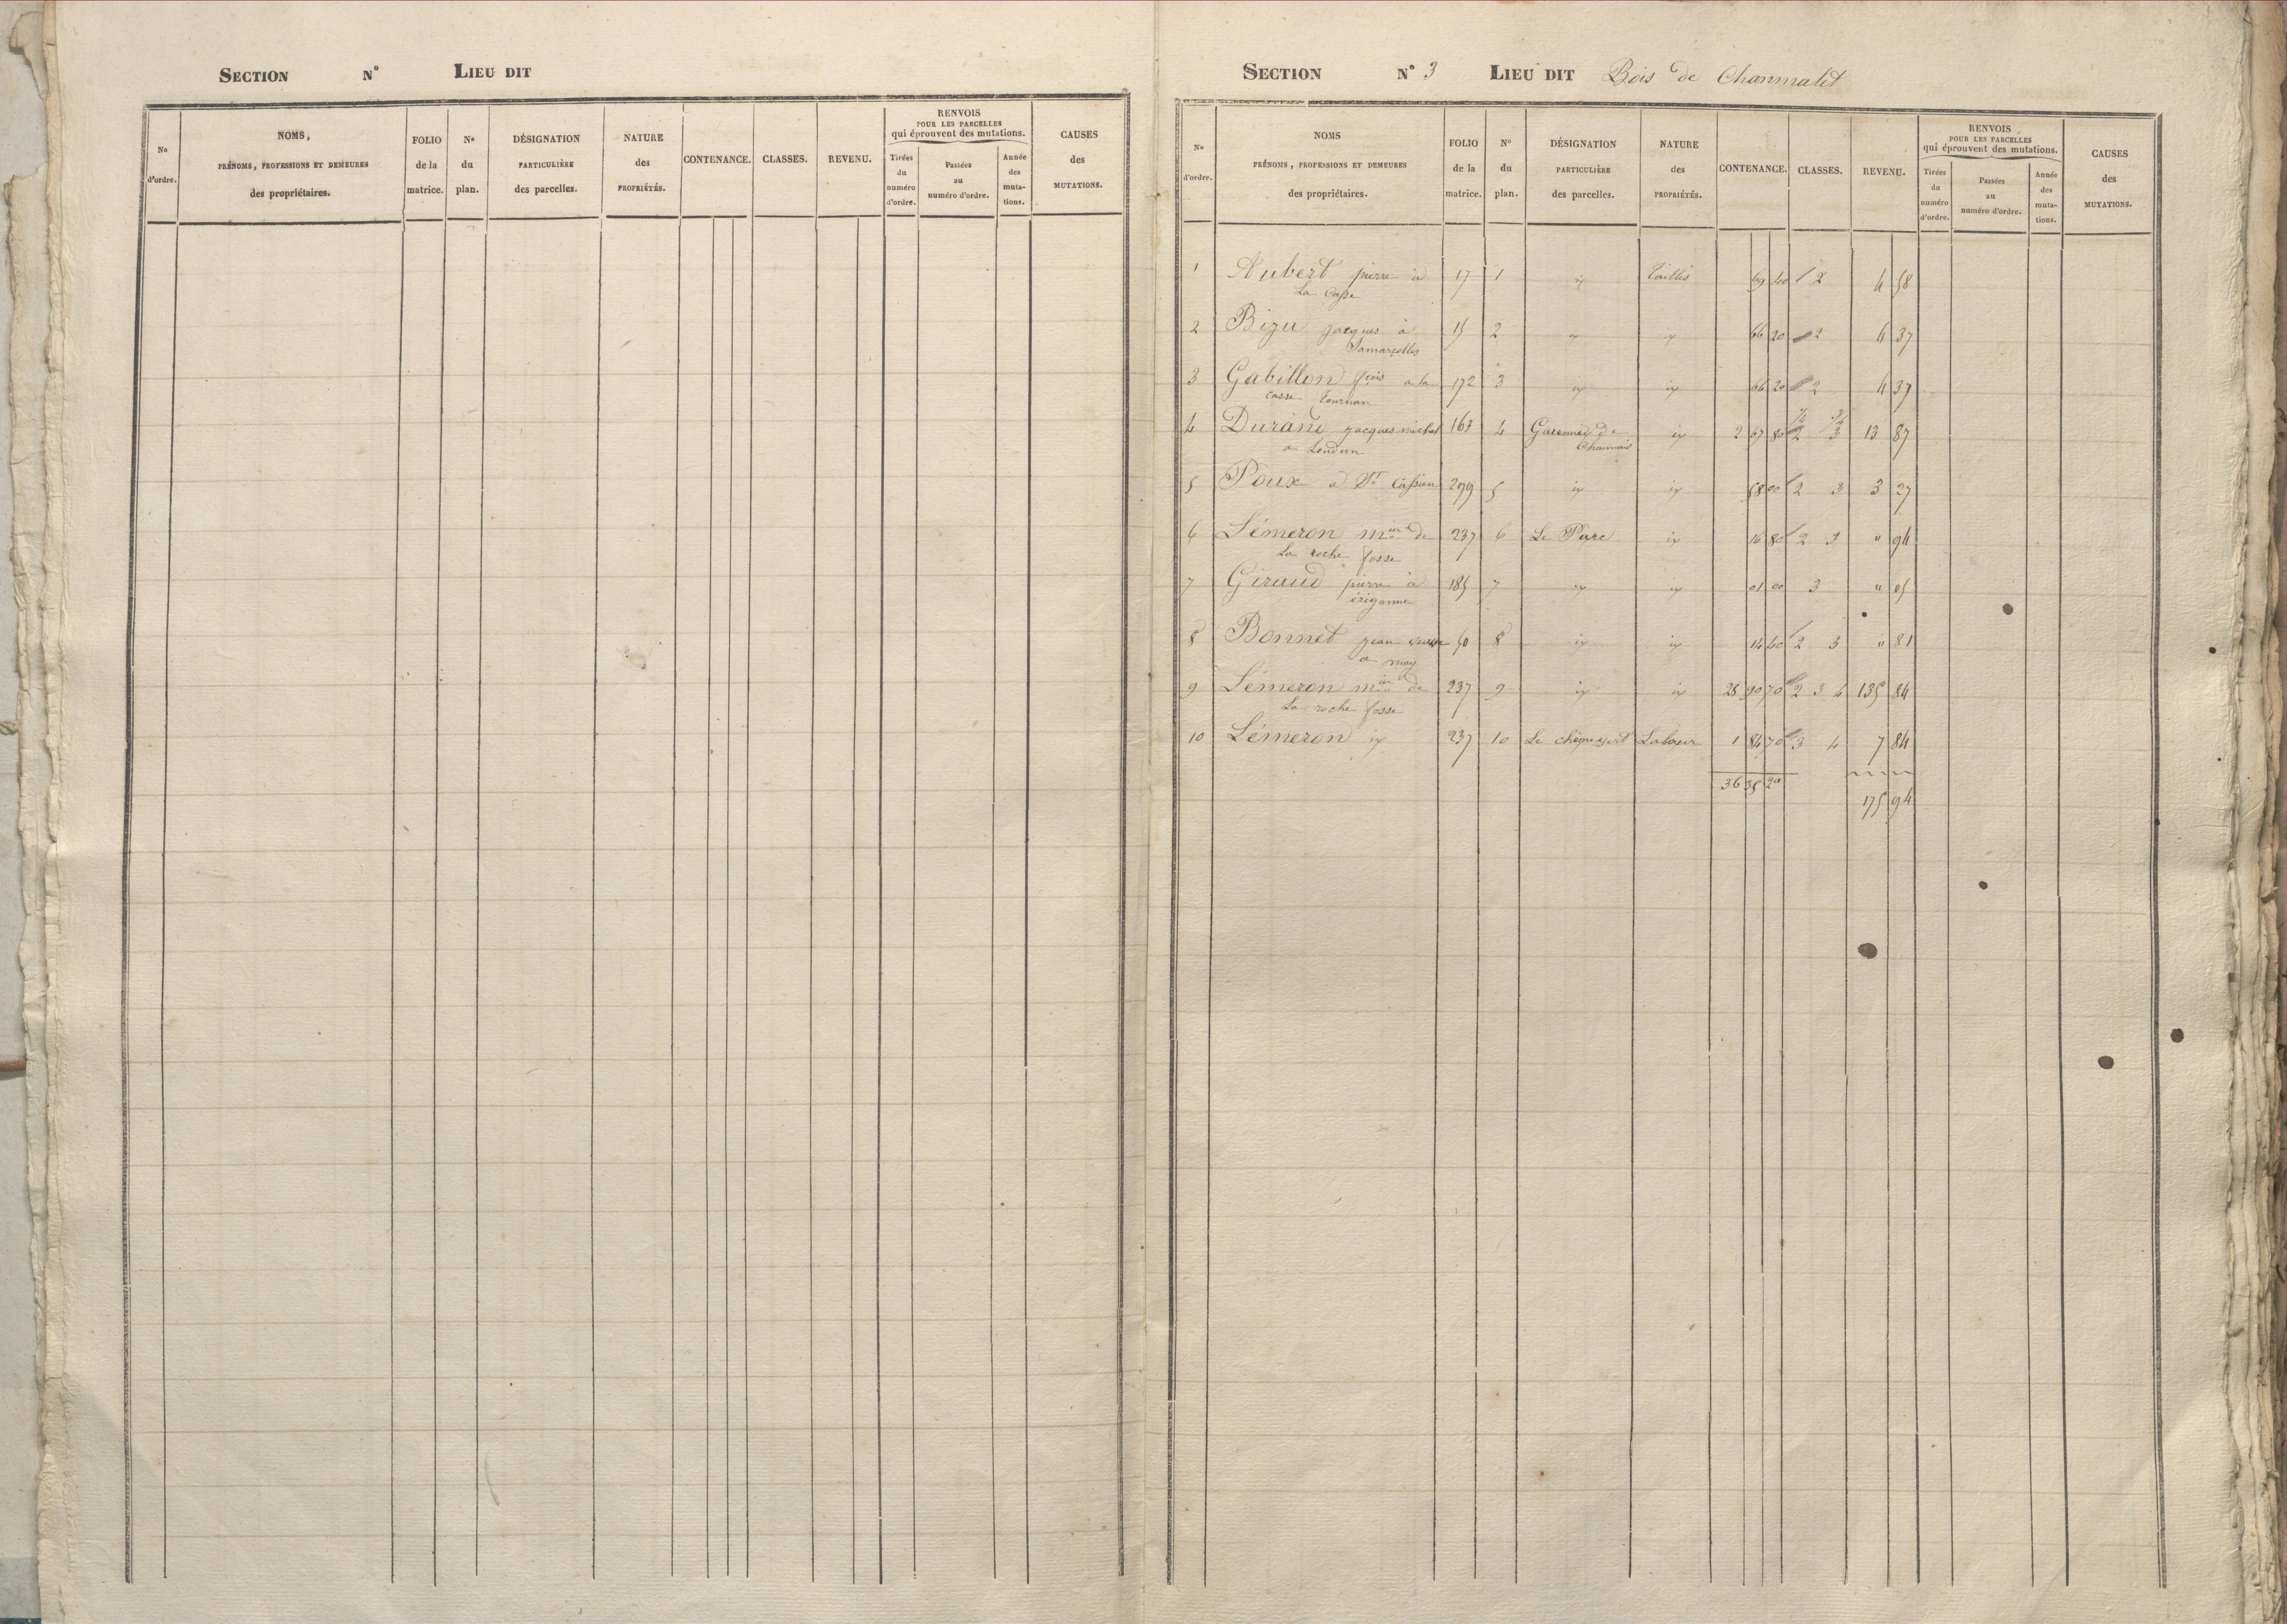 SECTION N° LIEU DIT
No d'ordre.
NOMS,
PRÉNOMS, PROFESSIONS ET DEMEURES
des propriétaires.
FOLIO de la matrice.
No du plan.
DÉSIGNATION PARTICULIÈRE des parcelles.
NATURE des PROPRIÉTÉS.
CONTENANCE.
CLASSES.
REVENU.
RENVOIS
POUR LES PARCELLES
qui éprouvent des mutations.
Tirées du numéro d'ordre.
Passées au numéro d'ordre.
Année des muta-tions.
CAUSES des MUTATIONS.
SECTION N° 3 LIEU DIT Bois de
No d'ordre.
NOMS
PRÉNOMS, PROFESSIONS ET DEMEURES
des propriétaires.
FOLIO de la matrice.
No du plan.
DÉSIGNATION PARTICULIÈRE des parcelles.
NATURE des PROPRIÉTÉS.
CONTENANCE.
CLASSES.
REVENU.
RENVOIS
POUR LES PARCELLES
qui éprouvent des mutations.
Tirées du numéro d'ordre.
Passées au numéro d'ordre.
Année des muta-tions.
CAUSES des MUTATIONS.
1 Aubert pierre à 17 1 Taillis 69 40 2 4 58
La Casse
2 Bizu jacques à 15 2 66 20 2 4 37
Samarcolles
3 Gabillon fcois a la 172 3 66 20 2 4 37
casse Tournan
4 jacques michel 163 4 de 2 67 80 2 3 13 87
a Loudun
5 Poux a St Cassien 299 5 58 00 2 3 3 27
6 Lémeron de 237 6 Le Parc 16 80 2 3 " 94
La roche fosse
7 Giraud pierre à 185 7 01 00 3 " 05
8 Bonnet jean 50 8 14 40 2 3 " 81
a
9 Lémeron de 237 9 28 90 70 2 3 4 135 84
La roche fosse
10 Lémeron 237 10 Le chêne vert Labour 1 84 70 3 4 7 84
36 35 20
175 94